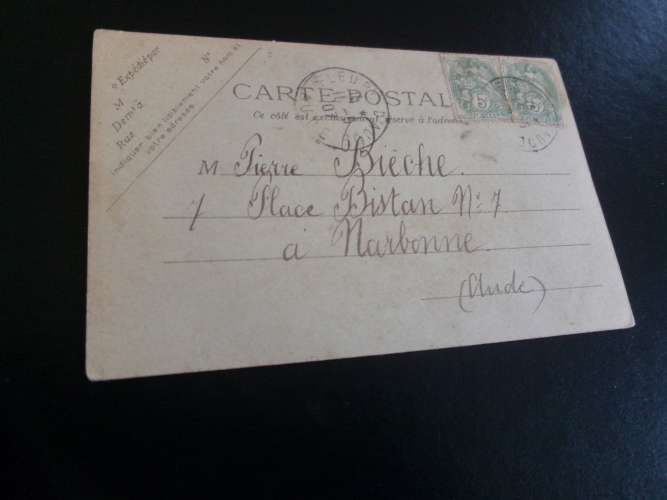 Expéditeur
M
Demt à
Rue
N°
Indiquer bien lisiblement votre nom et
votre adresse.
CARTE POSTAL
Ce côté est exclusivement réservé à l'adresse
M Pierre Bièche.
7 Place Bistan N° 7
à Narbonne.
(Aude)
5
5